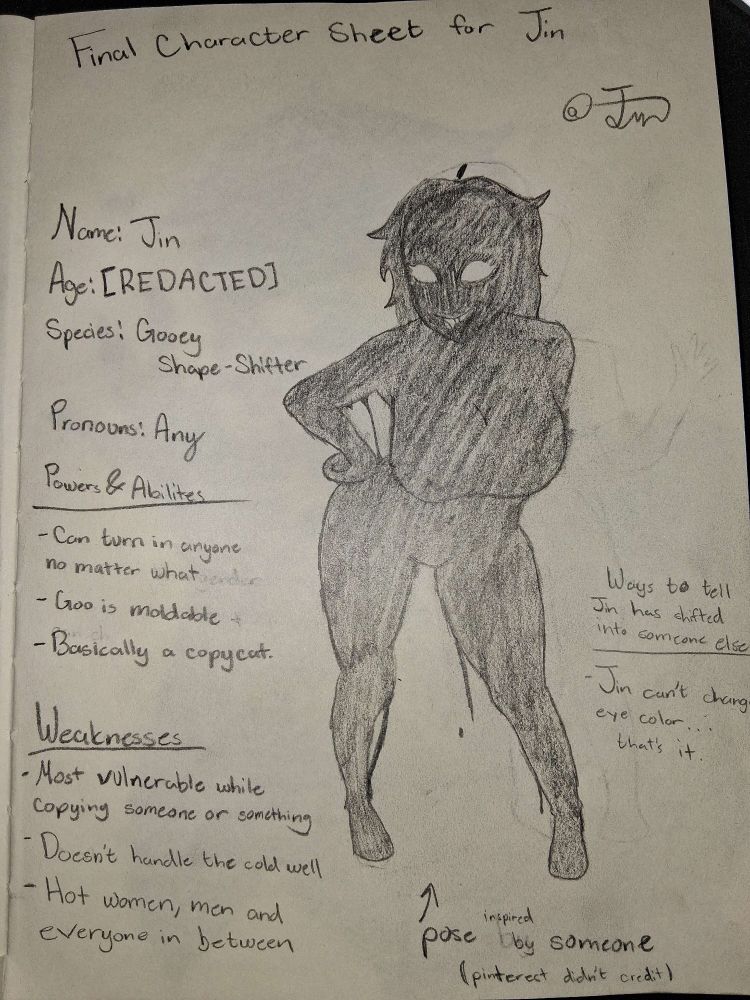 Final Character Sheet for Jin
@Jin
Name: Jin
Age: [REDACTED]
Species: Gooey
Shape-Shifter
Pronouns: Any
Powers & Abilites
- Can turn in anyone
no matter what
- Goo is moldable
- Basically a copycat.
Weaknesses
- Most vulnerable while
copying someone or something
- Doesn't handle the cold well
- Hot women, men and
everyone in between
Ways to tell
Jin has shifted
into someone else
- Jin can't chang
eye color...
that's it.
inspired
pose by someone
(pinterest didn't credit)